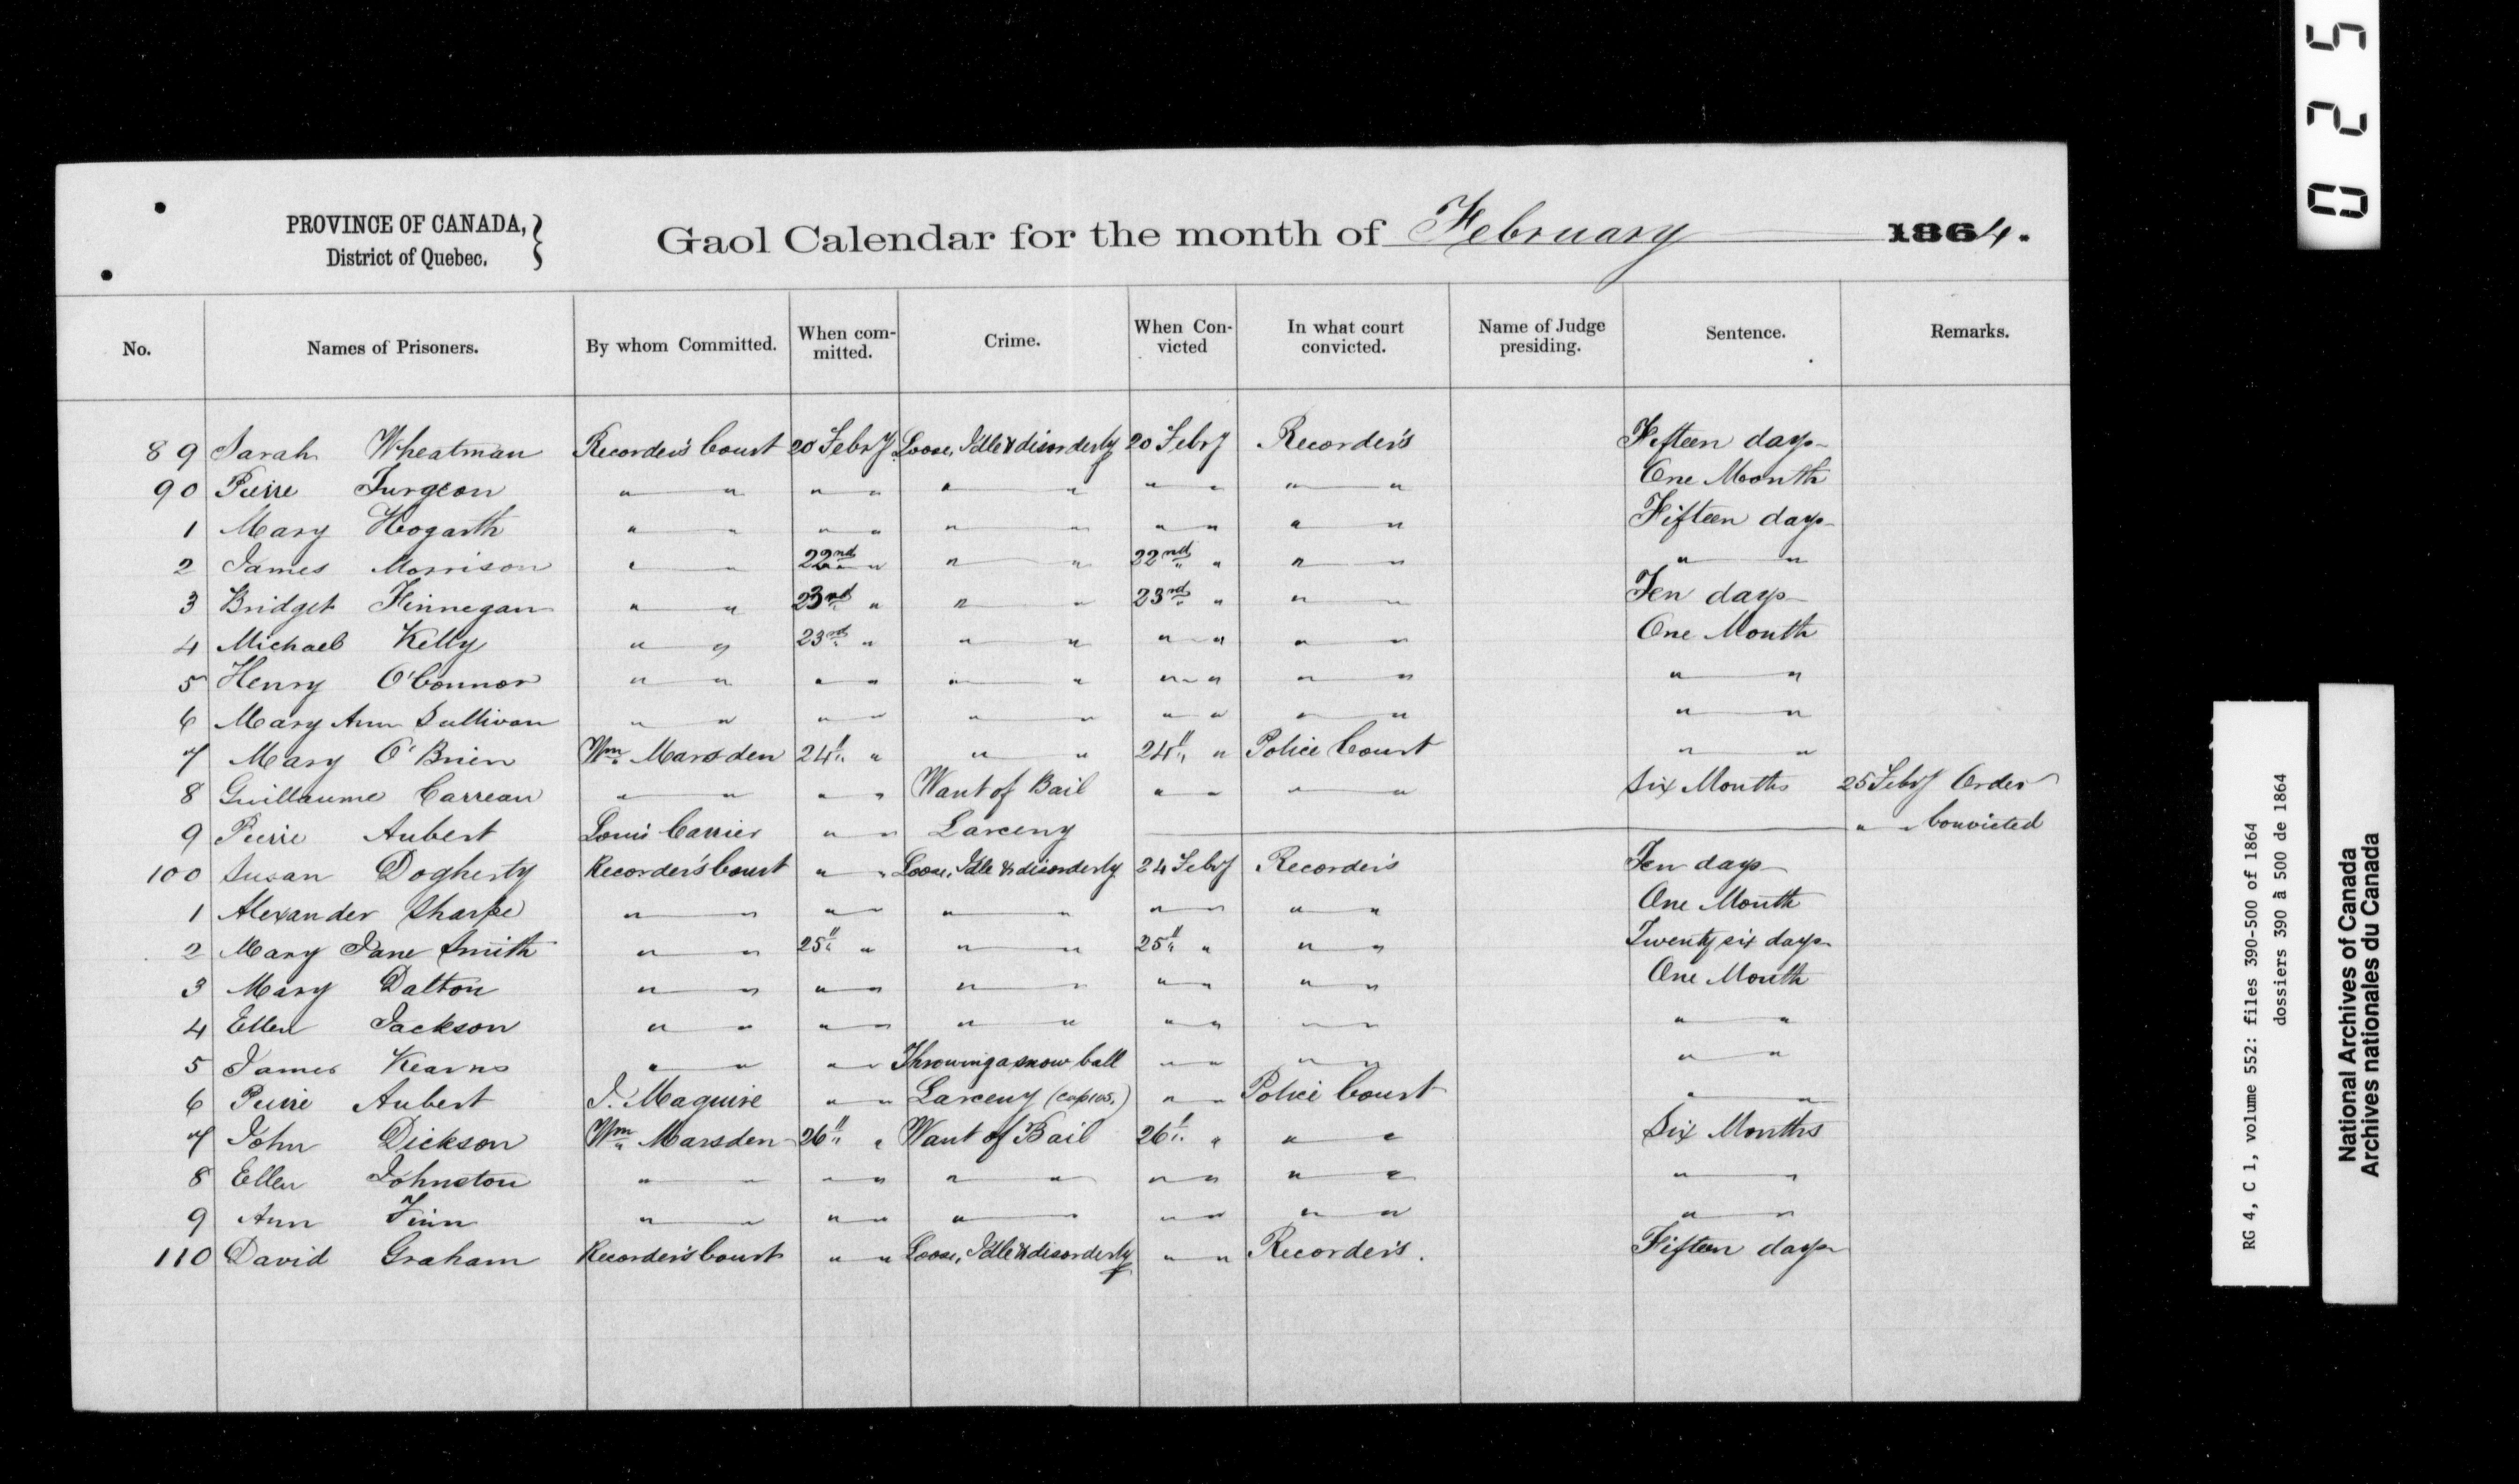 025
PROVINCE OF CANADA,
District of Quebec.
Gaol Calendar for the month of February 1864.
No. Names of Prisoners. By whom Committed. When committed. Crime. When Convicted In what court convicted. Name of Judge presiding. Sentence. Remarks.
89 Sarah Wheatman Recorder's Court 20 Febry Loose, Idle & disorderly 20 Febry Recorder's Fifteen days
90 Pierre Turgeon " " " " " " " " " " One Month
1 Mary Hogarth " " " " " " " " " " Fifteen days
2 James Morrison " " 22nd " " " 22nd " " " " "
3 Bridget Finnegan " " 23rd " " " 23rd " " " Ten days
4 Michael Kelly " " 23rd " " " " " " " One Month
5 Henry O'Connor " " " " " " " " " " " "
6 Mary Ann Sullivan " " " " " " " " " " " "
7 Mary O'Brien Wm Marsden 24" " " " 24" " Police Court " "
8 Guillaume Carreau " " " " Want of Bail " " " " Six Months 25 Febry Order
9 Pierre Aubert Louis Carrier " " Larceny " " Convicted
100 Susan Dogherty Recorder's Court " " Loose, Idle & disorderly 24 Febry Recorder's Ten days
1 Alexander Sharpe " " " " " " " " " " One Month
2 Mary Jane Smith " " 25" " " " 25" " " " Twenty six days
3 Mary Dalton " " " " " " " " " " One Month
4 Ellen Jackson " " " " " " " " " " " "
5 James Kearns " " " " Throwing a snow ball " " " " " "
6 Pierre Aubert J. Maguire " " Larceny (capias.) " " Police Court " "
7 John Dickson Wm Marsden 26" " Want of Bail 26" " " " Six Months
8 Ellen Johnston " " " " " " " " " " " "
9 Ann Finn " " " " " " " " " " " "
110 David Graham Recorder's Court " " Loose, Idle & disorderly " " Recorder's. Fifteen days
RG 4, C 1, volume 552: files 390-500 of 1864
dossiers 390 à 500 de 1864
National Archives of Canada
Archives nationales du Canada